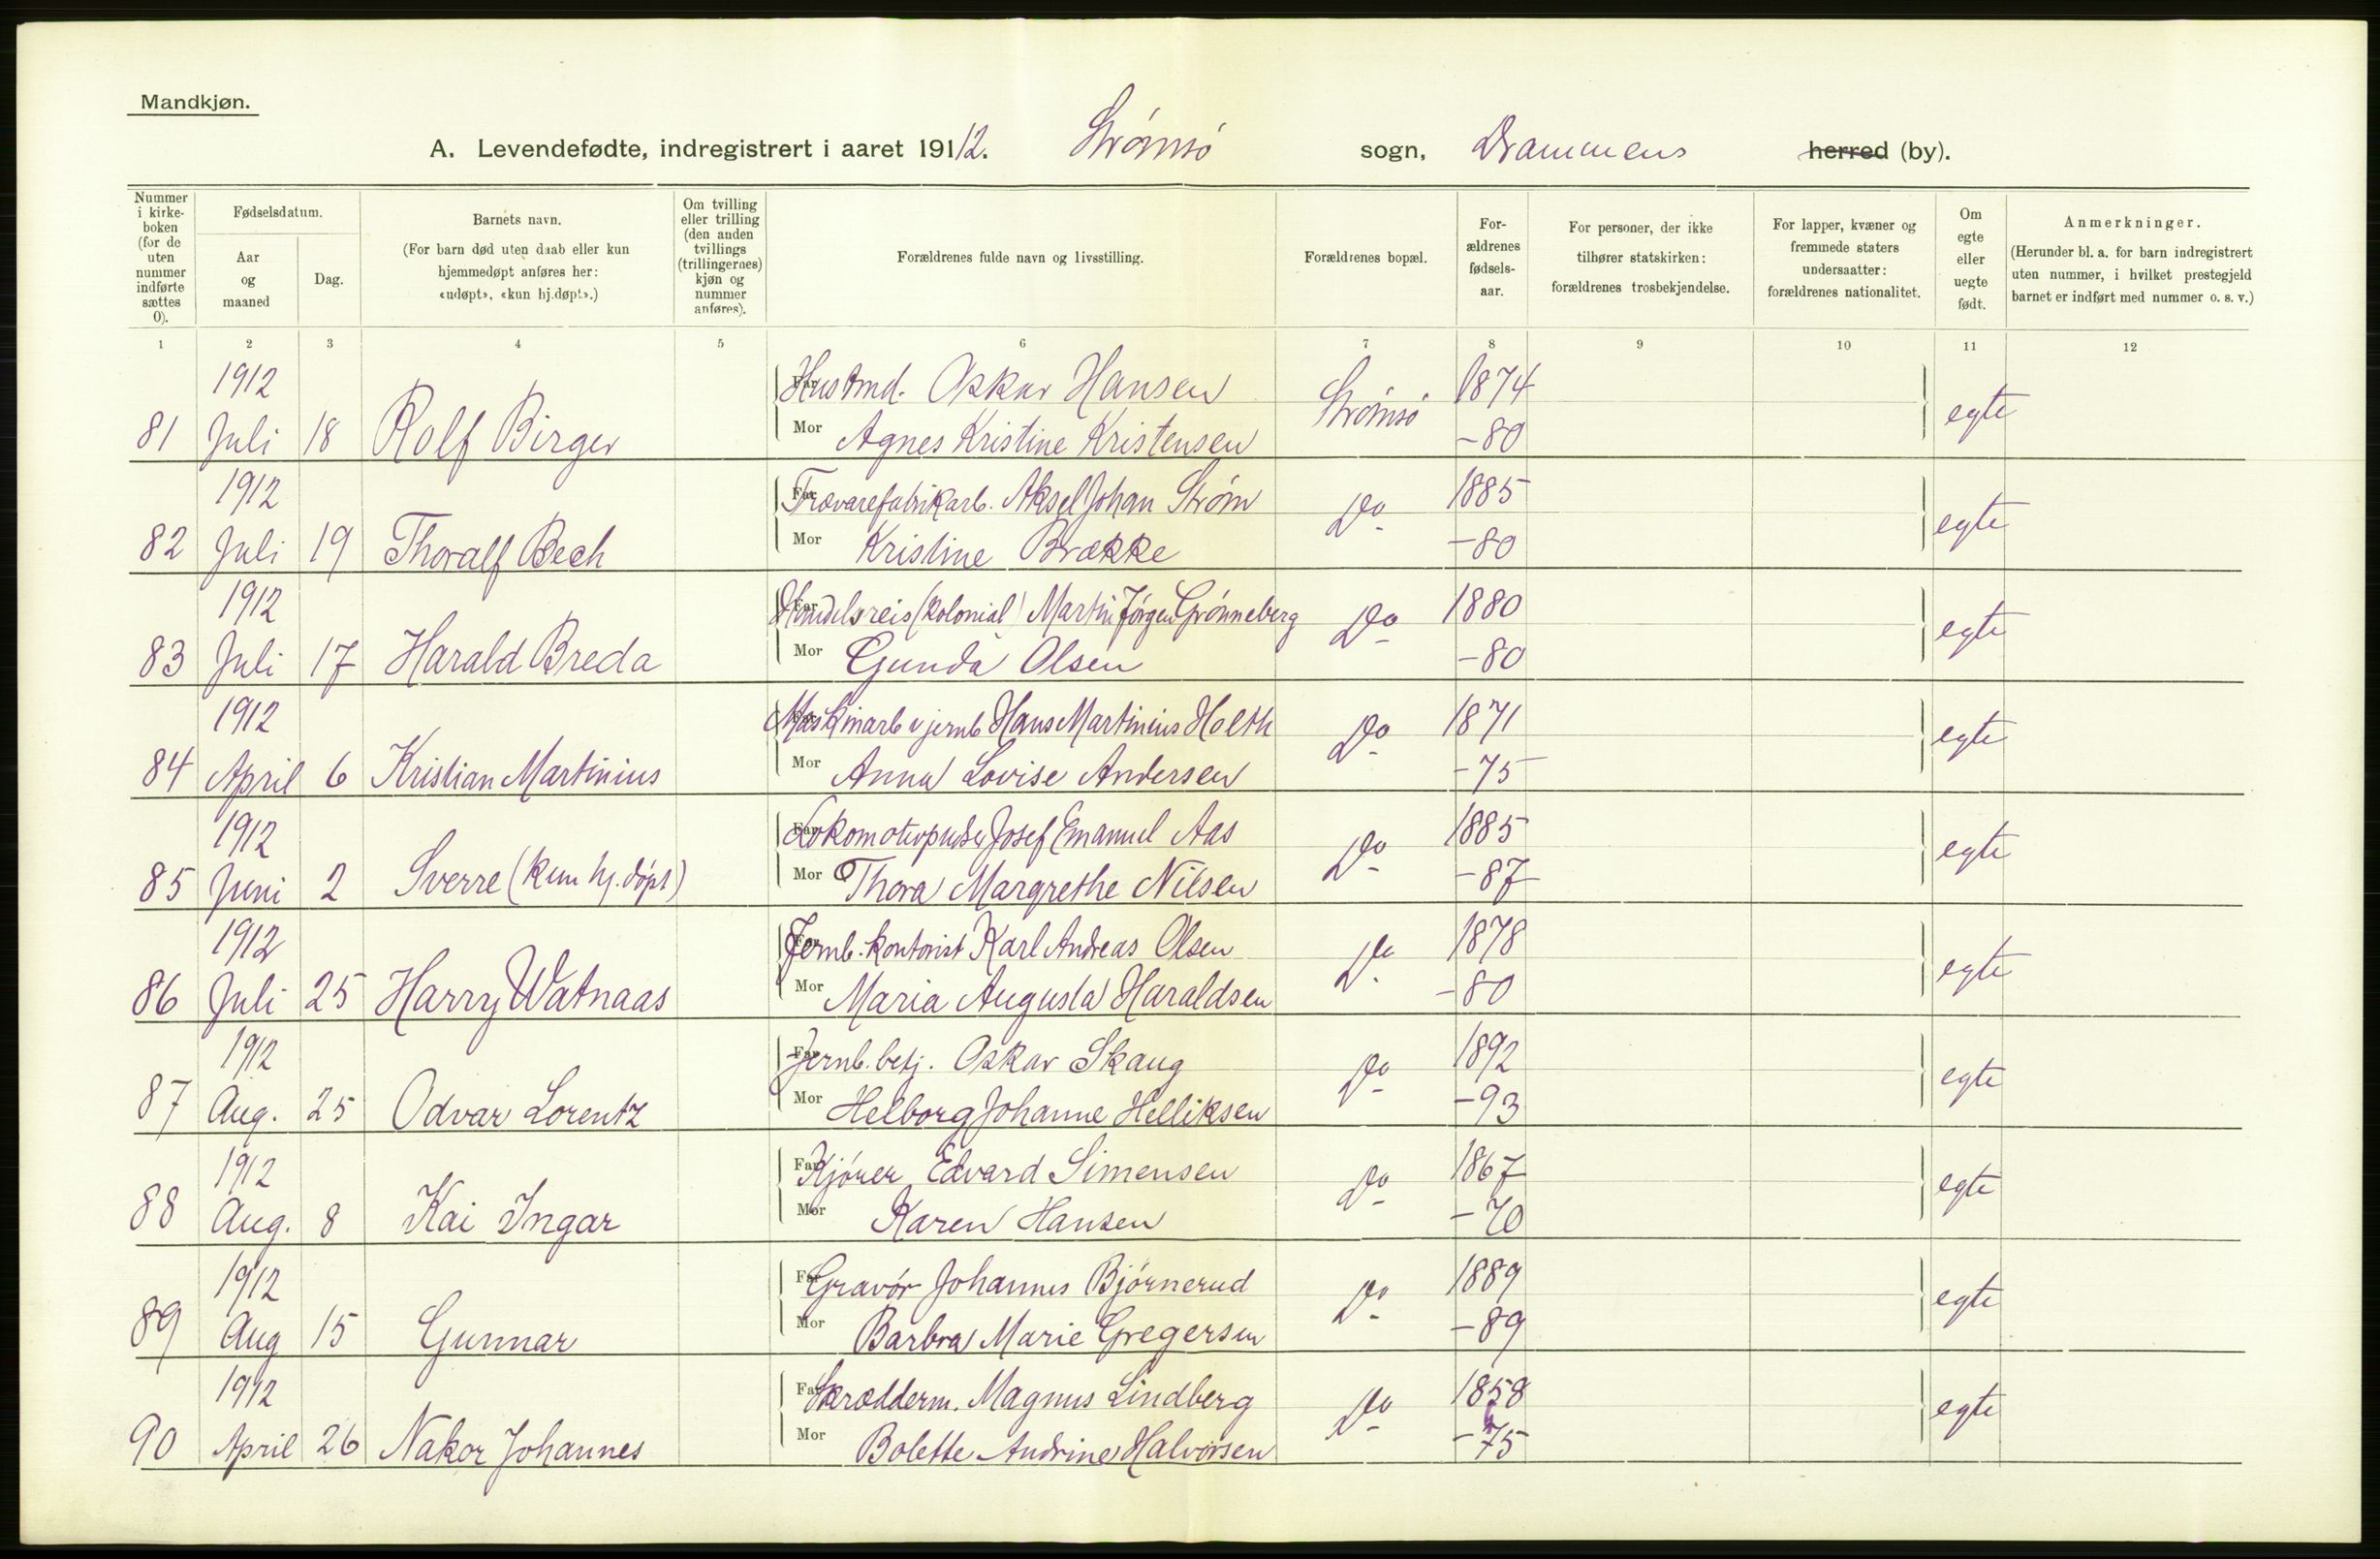 Mandkjøn.
A. Levendefødte, indregistrert i aaret 1912. Strømsø sogn, Drammens herred (by).
Nummer i kirkeboken (for de uten nummer indførte sættes 0).
Fødselsdatum.
Aar og maaned
Dag.
Barnets navn.
(For barn død uten daab eller kun hjemmedøpt anføres her: «udøpt», «kun hj.døpt».)
Om tvilling eller trilling (den anden tvillings (trillingernes) kjøn og nummer anføres).
Forældrenes fulde navn og livsstilling.
Forældrenes bopæl.
Forældrenes fødselsaar.
For personer, der ikke tilhører statskirken: forældrenes trosbekjendelse.
For lapper, kvæner og fremmede staters undersaatter: forældrenes nationalitet.
Om egte eller uegte født.
Anmerkninger.
(Herunder bl. a. for barn indregistrert uten nummer, i hvilket prestegjeld barnet er indført med nummer o. s. v.)
1 2 3 4 5 6 7 8 9 10 11 12
1912 Far Oskar Hansen Strømsø 1874 egte
81 Juli 18 Rolf Birger Mor Agnes Kristine Kristensen -80
1912 Far Trævarefabrikarb. Aksel Johan Strøm Do 1885 egte
82 Juli 19 Thoralf Bech Mor Kristine Brække -80
1912 Far Handelsreis (kolonial) Martin Jørgen Grønneberg Do 1880 egte
83 Juli 17 Harald Breda Mor Gunda Olsen -80
1912 Far Maskinarb v jernb Hans Martinius Holth Do 1871 egte
84 April 6 Kristian Martinius Mor Anna Lovise Andersen -75
1912 Far Lokomotivpudser Josef Emanuel Aas Do 1885 egte
85 Juni 2 Sverre (kun hj. døpt) Mor Thora Margrethe Nilsen -87
1912 Far Jernb. kontorist Karl Andreas Olsen Do 1878 egte
86 Juli 25 Harry Watnaas Mor Maria Augusta Haraldsen -80
1912 Far Jernb. betj. Oskar Skaug Do 1892 egte
87 Aug. 25 Odvar Lorentz Mor Helborg Johanne Helliksen -93
1912 Far Kjører Edvard Simensen Do 1867 egte
88 Aug. 8 Kai Ingar Mor Karen Hansen -70
1912 Far Gravør Johannes Bjørnerud Do 1889 egte
89 Aug 15 Gunnar Mor Barbra Marie Gregersen -89
1912 Far Skrædderm. Magnus Lindberg Do 1858 egte
90 April 26 Nakor Johannes Mor Bolette Andrine Halvorsen -75